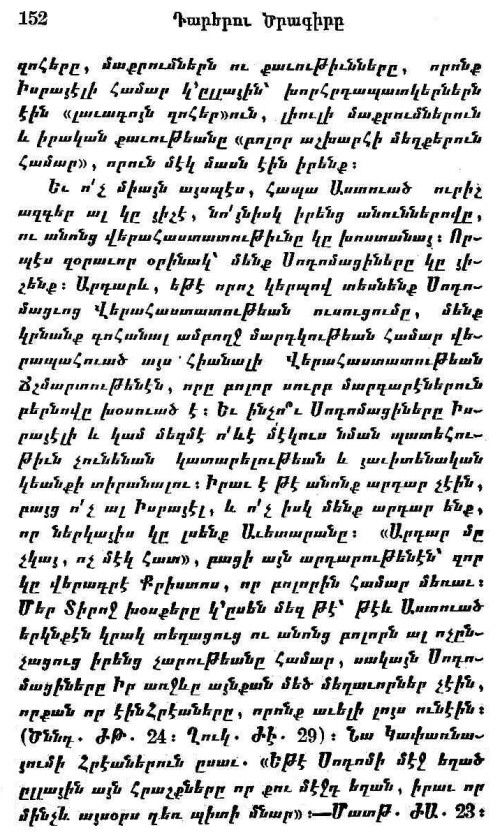 152 Դարերու Ծրագիրը
զոհերը, մաքրումներն ու քաւութիւնները, որոնք
Իսրայէլի համար կ՚ըլլային՝ խորհրդապատկերներն
էին «լաւագոյն զոհեր»ուն, լիուլի մաքրումներուն
և իրական քաւութեանը «բոլոր աշխարհի մեղքերուն
համար», որուն մէկ մասն էին իրենք։
Եւ ո՛չ միայն այսպէս, հապա Աստուած ուրիշ
ազգեր ալ կը յիշէ, նո՛յնիսկ իրենց անուններովը,
ու անոնց վերահաստատութիւնը կը խոստանայ։ Որ-
պէս զօրաւոր օրինակ՝ մենք Սոդոմացիները կը յի-
շենք։ Արդարև, եթէ որոշ կերպով տեսնենք Սոդո-
մացւոց Վերահաստատութեան ուսուցումը, մենք
կրնանք գոհանալ ամբողջ մարդկութեան համար վե-
րապահուած այս հիանալի Վերահաստատութեան
Ճշմարտութենէն, որը բոլոր սուրբ մարգարէներուն
բերնովը խօսուած է։ Եւ ինչո՞ւ Սոդոմացիները Իս-
րայէլի և կամ մեզմէ ո՛ևէ մէկուս նման պատեհու-
թիւն չունենան կատարելութեան և յաւիտենական
կեանքի տիրանալու։ Իրաւ է թէ անոնք արդար չէին,
բայց ո՛չ ալ Իսրայէլ, և ո՛չ իսկ մենք արդար ենք,
որ ներկայիս կը լսենք Աւետարանը։ «Արդար մը
չկայ, ոչ մէկ հատ», բացի այն արդարութենէն՝ զոր
կը վերադրէ Քրիստոս, որ բոլորին համար մեռաւ։
Մեր Տիրոջ խօսքերը կ՚ըսեն մեզ թէ՝ թէև Աստուած
երկնքէն կրակ տեղացուց ու անոնց բոլորն ալ ոչըն-
չացուց իրենց չարութեանը համար, սակայն Սոդո-
մացիները Իր առջևը այնքան մեծ մեղաւորներ չէին,
որքան որ էինՀրէաները, որոնք աւելի լոյս ունէին։
(Ծննդ. ԺԹ. 24։ Ղուկ. ԺԷ. 29)։ Նա Կափառնա-
յումի Հրէաներուն ըսաւ. «Եթէ Սոդոմի մէջ եղած
ըլլային այն հրաշքները որ քու մէջդ եղան, իրաւ որ
մինչև այսօրս դեռ պիտի մնար»։—Մատթ. ԺԱ. 23։